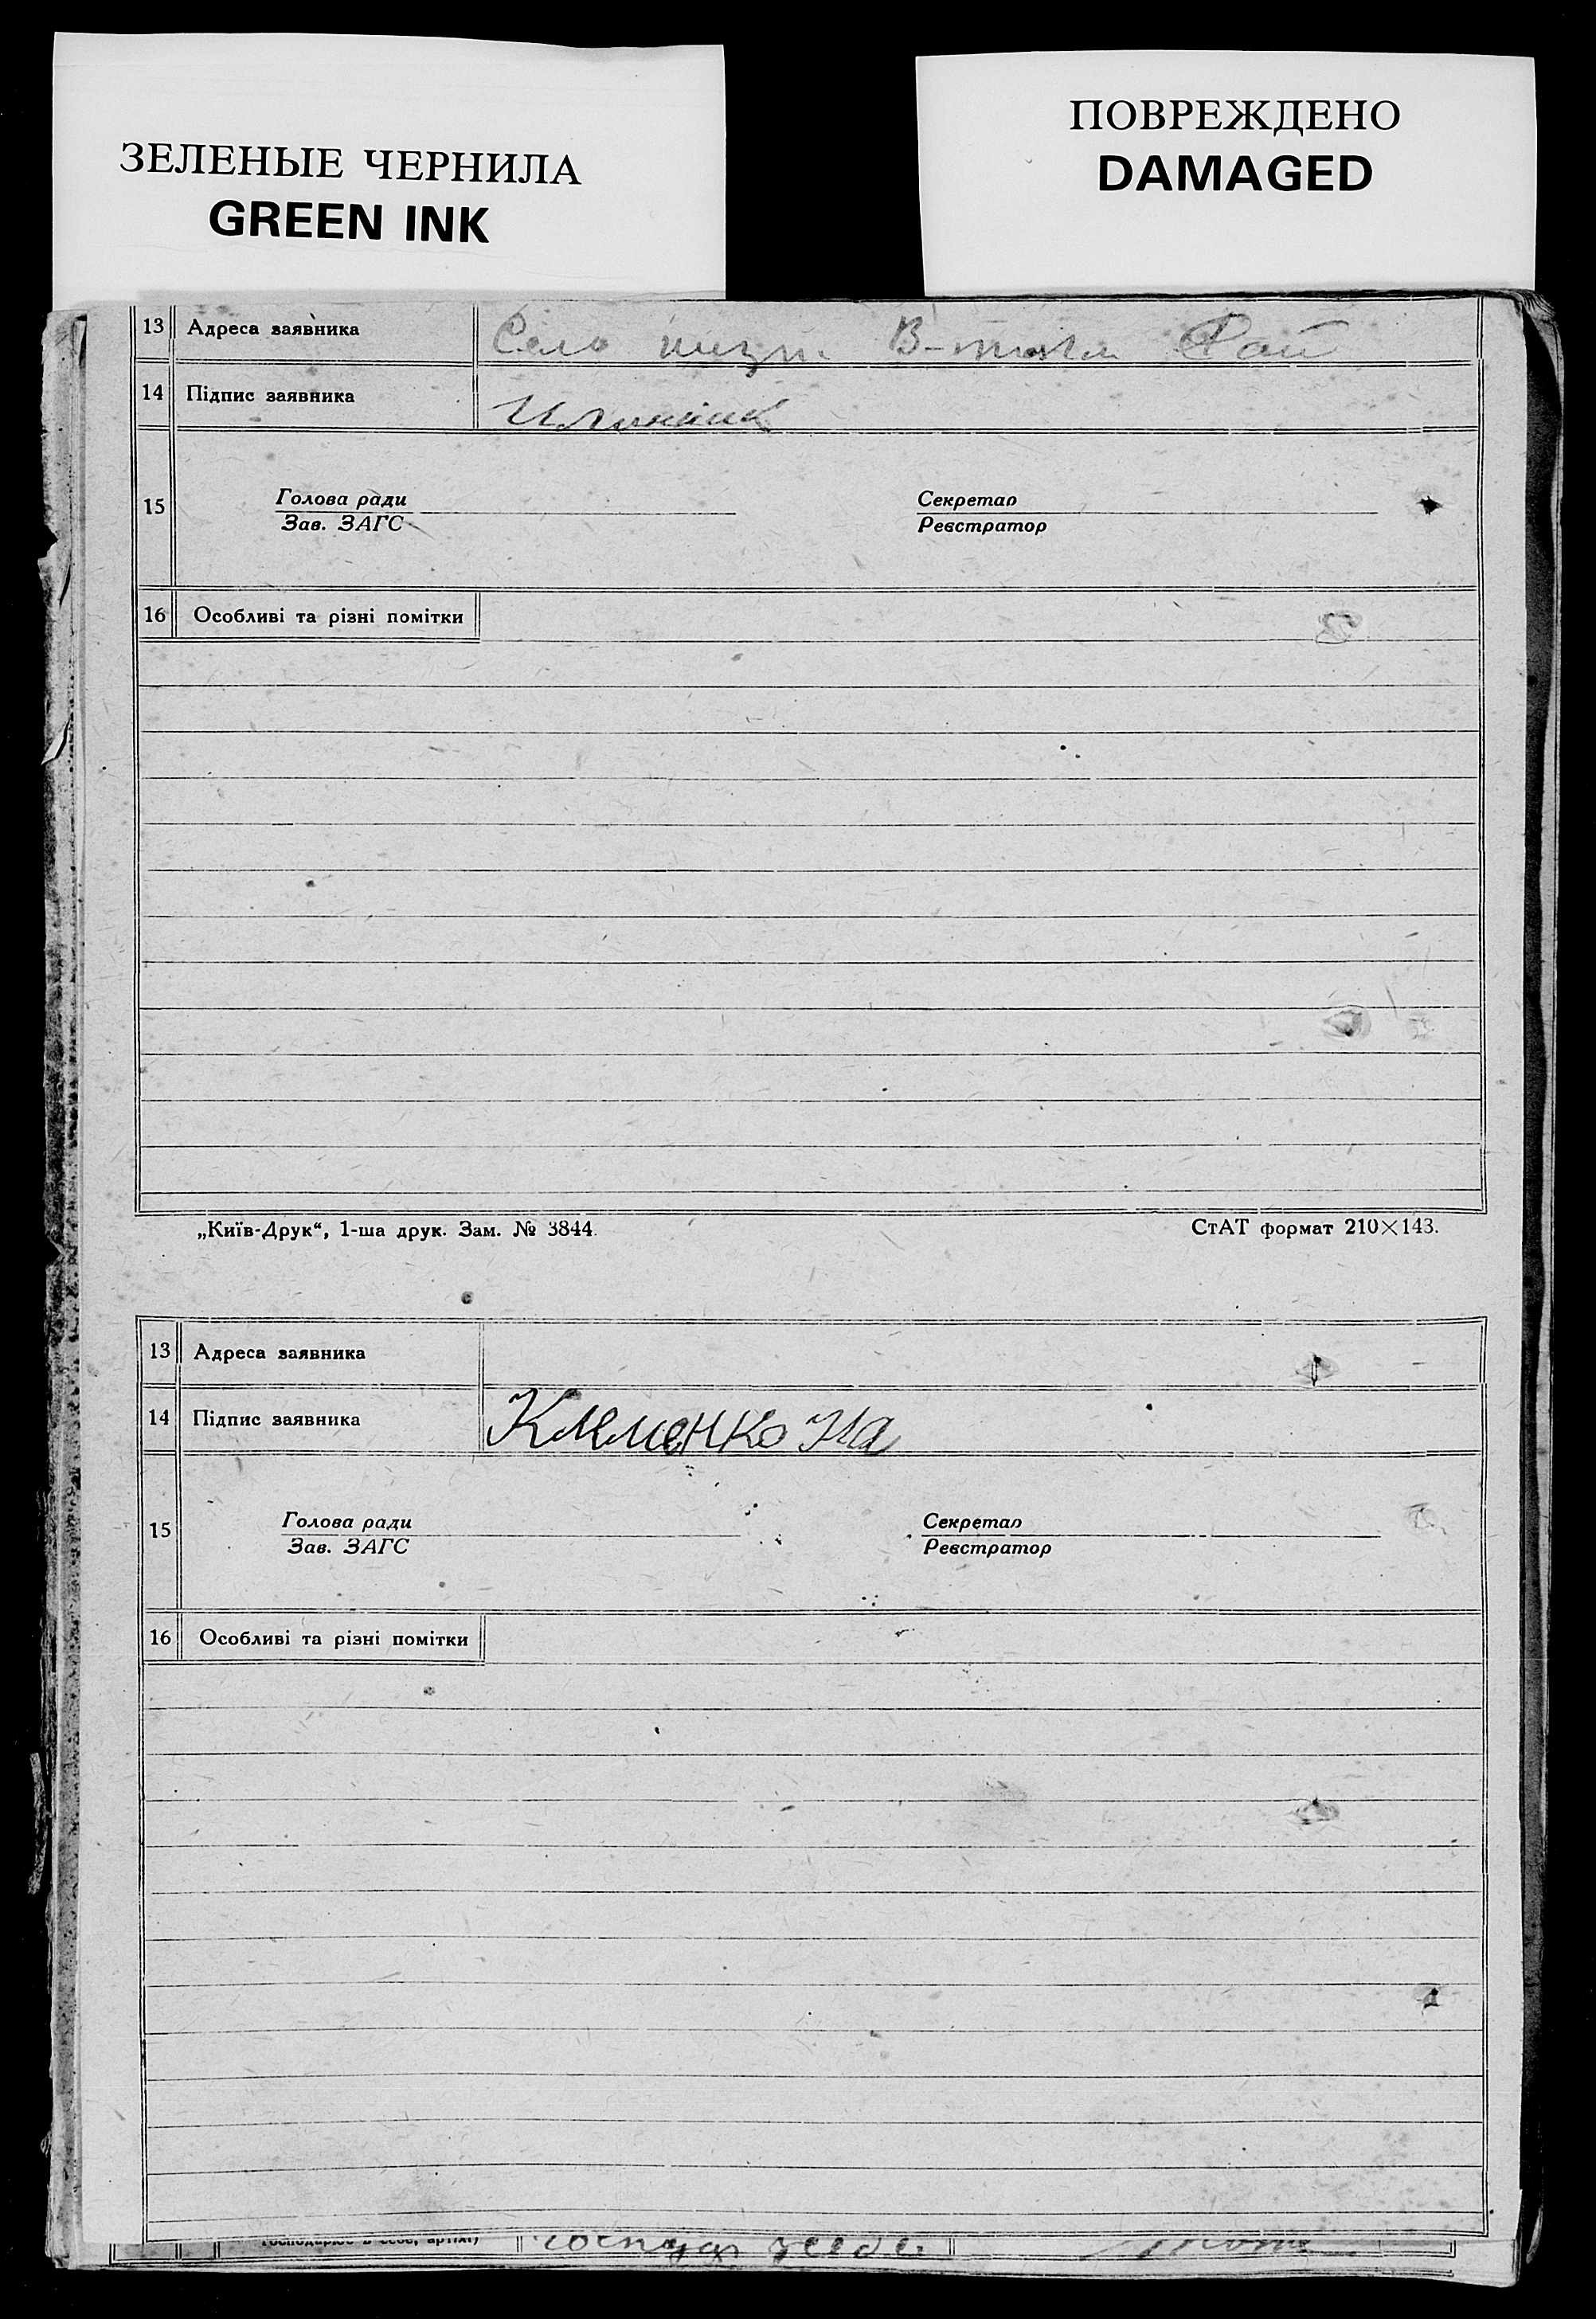 ЗЕЛЕНЫЕ ЧЕРНИЛА
GREEN INK
ПОВРЕЖДЕНО
DAMAGED
13 Адреса заявника Село
14 Підпис заявника
15 Голова ради Секретар
Зав. ЗАГС Реєстратор
16 Особливі та різні помітки
„Київ-Друк“, 1-ша друк. Зам. № 3844. СтАТ формат 210×143.
13 Адреса заявника
14 Підпис заявника Клименко
15 Голова ради Секретар
Зав. ЗАГС Реєстратор
16 Особливі та різні помітки